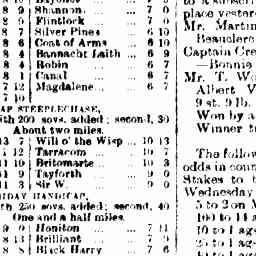 8 9 Shannon ... 7 0
8 9 Flintlock ... 7 0
8 7 Silver Pines ... 6 10
8 6 Coat of Arms ... 6 10
8 4 Bannacht Laith ... 6 9
8 4 Robin ... 6 7
8 1 Canal ... 6 7
7 12 Magdalene... ... 6 7
7 10
AP STEEPLECHASE,
ith 200 sovs. added; second, 30
About two miles.
13 7 Will o' the Wisp ... 10 13
12 7 Tarracom ... 10 7
11 10 Britomarte ... 10 3
11 9 Tayforth ... 9 0
11 3 Sir W. ... 9 0
IDAY HANDICAP,
th 250 sovs. added; second, 40
One and a half miles.
9 0 Honiton ... 7 11
8 13 Brilliant ... 7 9
8 8 Black Harry ... 7 6
to a subscri
place yester
Mr. Martin
Beauclere
Captain Cre
—Bonnie
Mr. T. Wo
Albert V
9 st. 9 lb.
Won by a
Winner t
The follow
odds in coun
Stakes to b
Wednesday
5 to 2 on M
100 to 14 a
10 to 1 aga
25 to 1 aga
40 to 1 aga